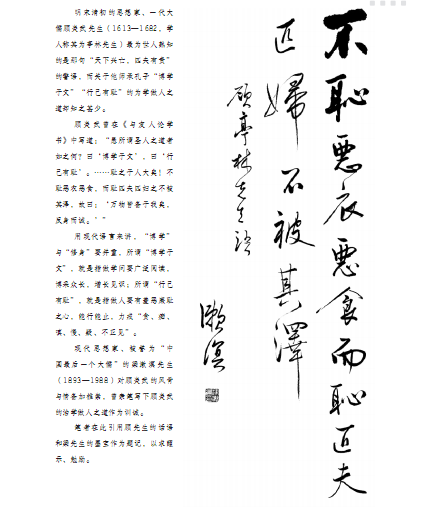 明末清初的思想家、一代大
儒顾炎武先生（1613—1682，学
人称其为亭林先生）最为世人熟知
的是那句“天下兴亡，匹夫有责”
的警语，而关于他师承孔子“博学
于文”“行己有耻”的为学做人之
道却知之甚少。
顾炎武曾在《与友人论学
书》中写道：“愚所谓圣人之道者
如之何？曰‘博学于文’，曰‘行
己有耻’。……耻之于人大矣！不
耻恶衣恶食，而耻匹夫匹妇之不被
其泽，故曰：‘万物皆备于我矣，
反身而诚。’”
用现代语言来讲，“博学”
与“修身”要并重，所谓“博学于
文”，就是指做学问要广泛阅读、
博采众长、增长见识；所谓“行己
有耻”，就是指做人要有羞恶廉耻
之心，能行能止，力戒“贪、痴、
嗔、慢、疑、不正见”。
现代思想家、被誉为“中
国最后一个大儒”的梁漱溟先生
（1893—1988）对顾炎武的风骨
与情备加推崇，曾亲笔写下顾炎武
的治学做人之道作为训诫。
笔者在此引用顾先生的话语
和梁先生的墨宝作为题记，以求醒
示、勉励。
不恥惡衣惡食而恥匹夫
匹婦不被其澤
顾亭林先生语
漱溟